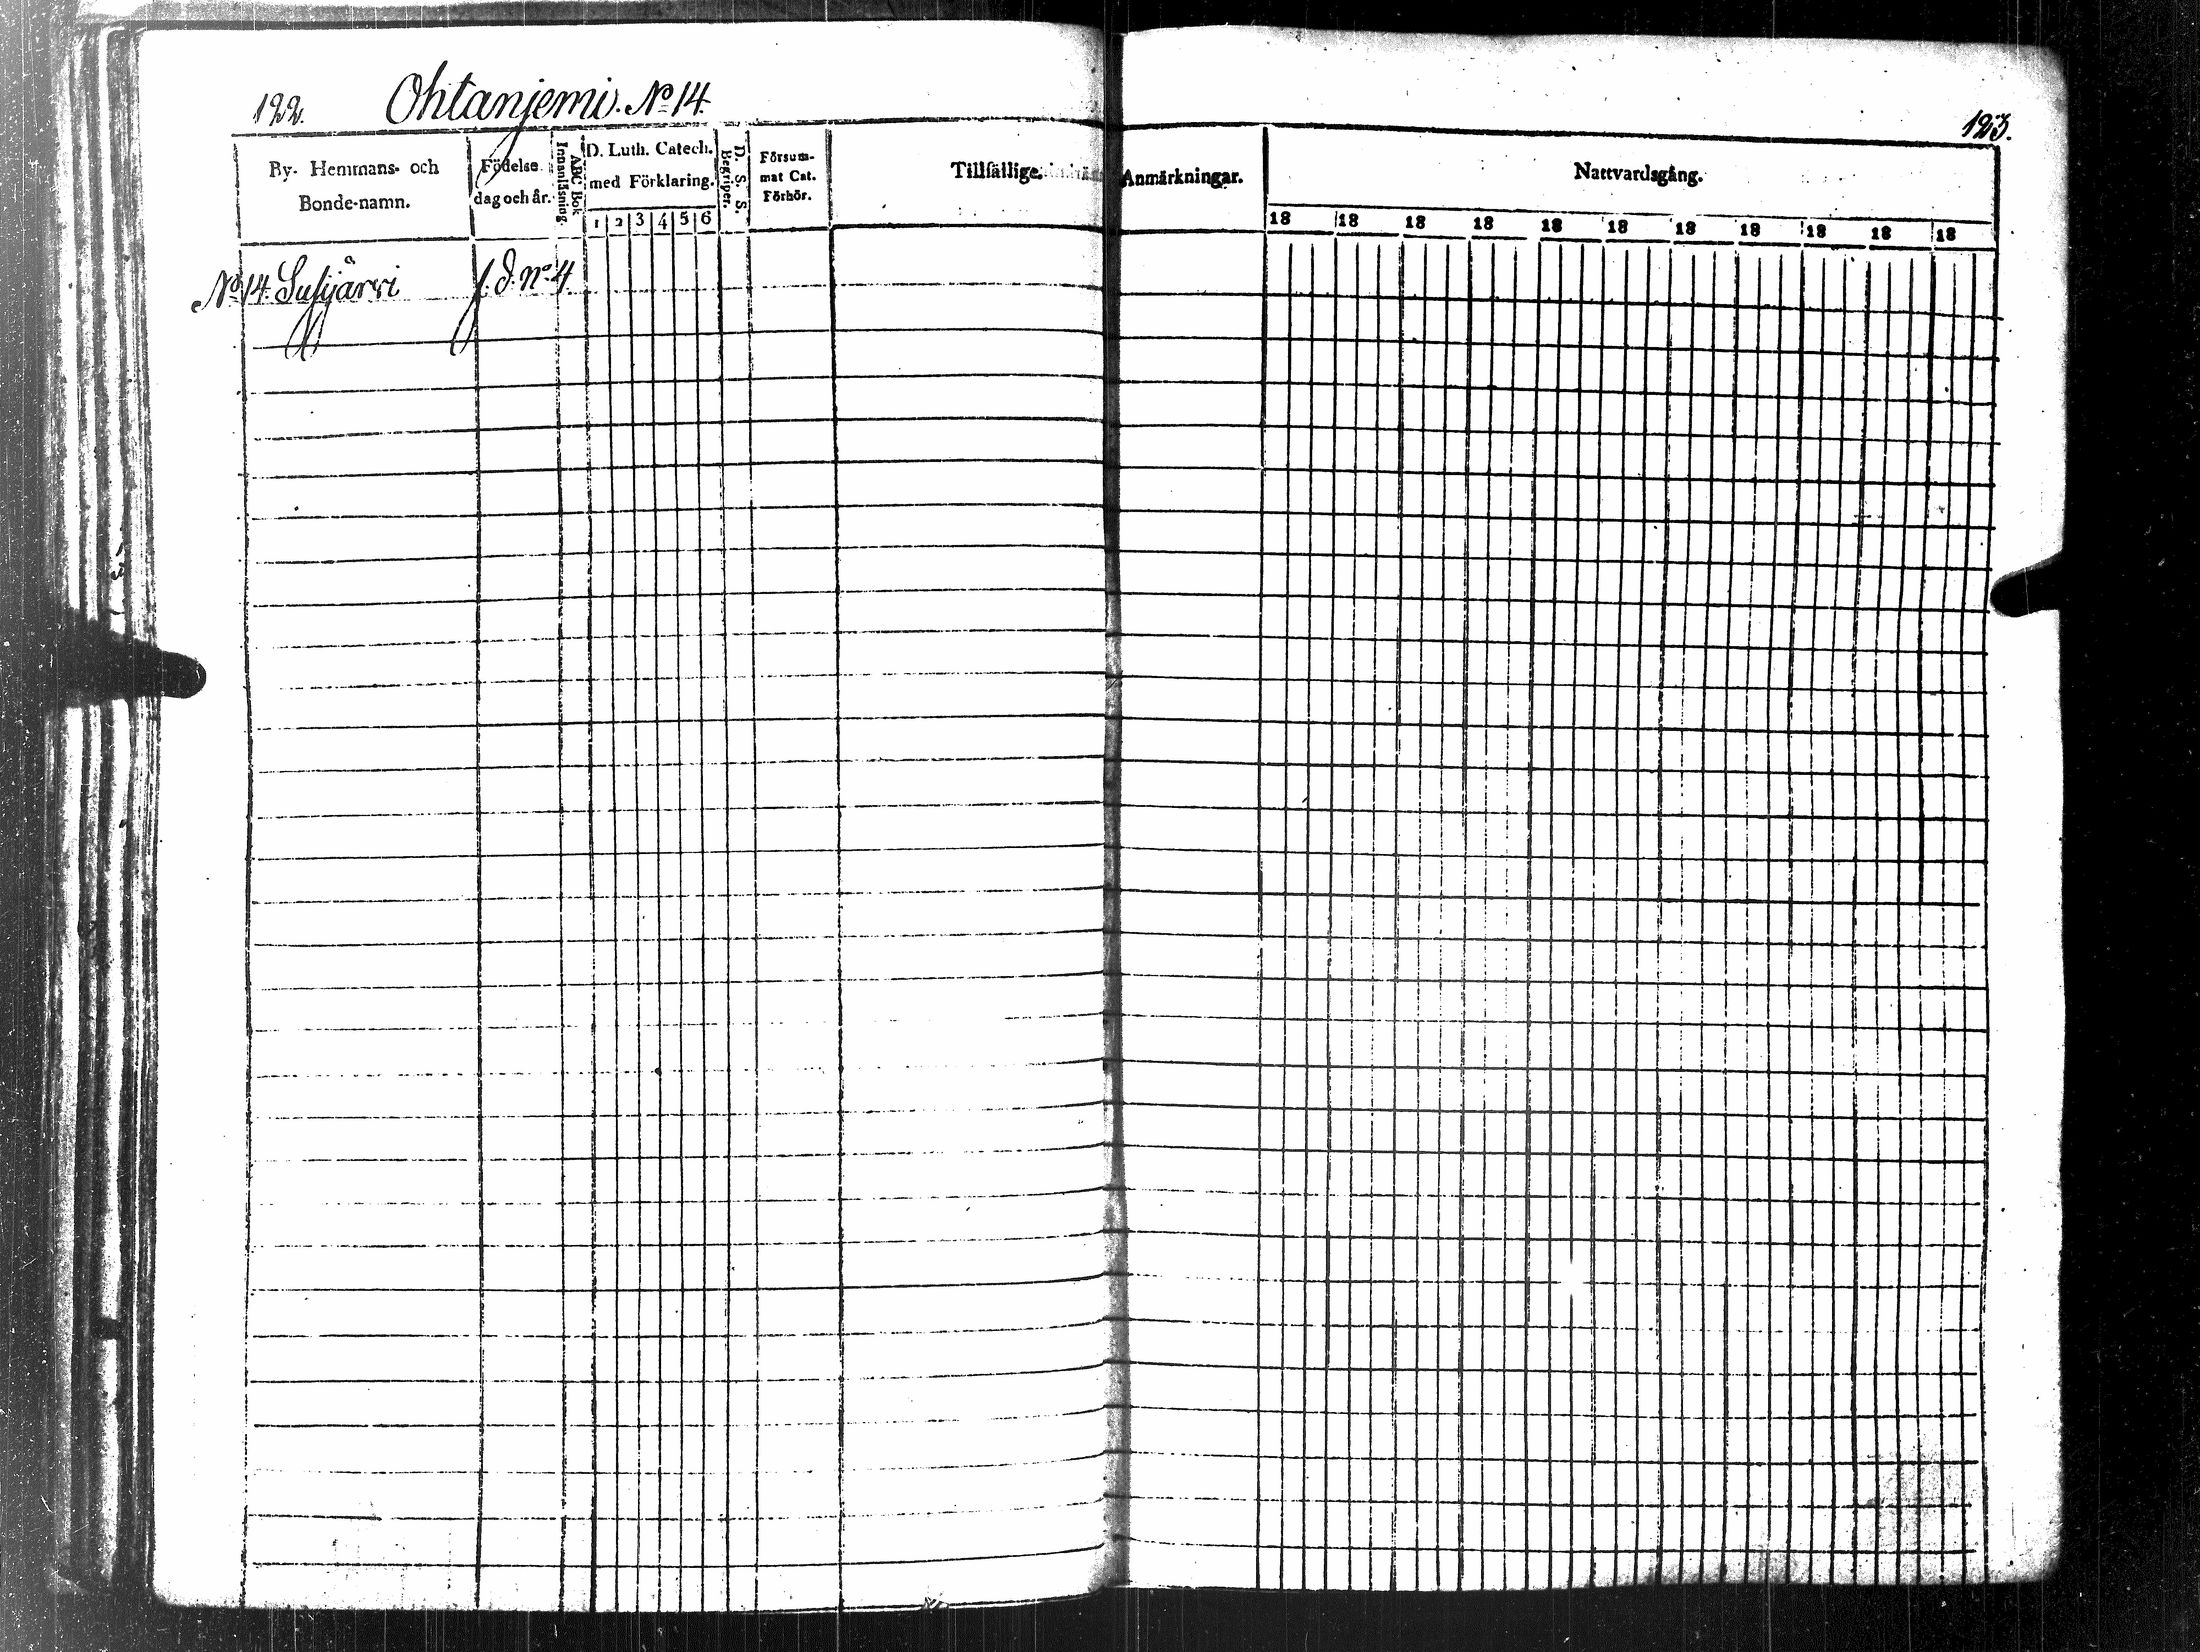 122. Ohtanjemi. No 14.
123.
By- Hemmans- och
Bonde-namn.
Födelse
dag och år.
ABC Bok
Innanläsning.
D. Luth. Catech.
med Förklaring.
1 2 3 4 5 6
D. S. S.
Begriper.
Försum-
mat Cat.
Förhör.
Tillfällige Anmärkningar.
Nattvardsgång.
18 18 18 18 18 18 18 18 18 18 18
No 14. f. d. No 4